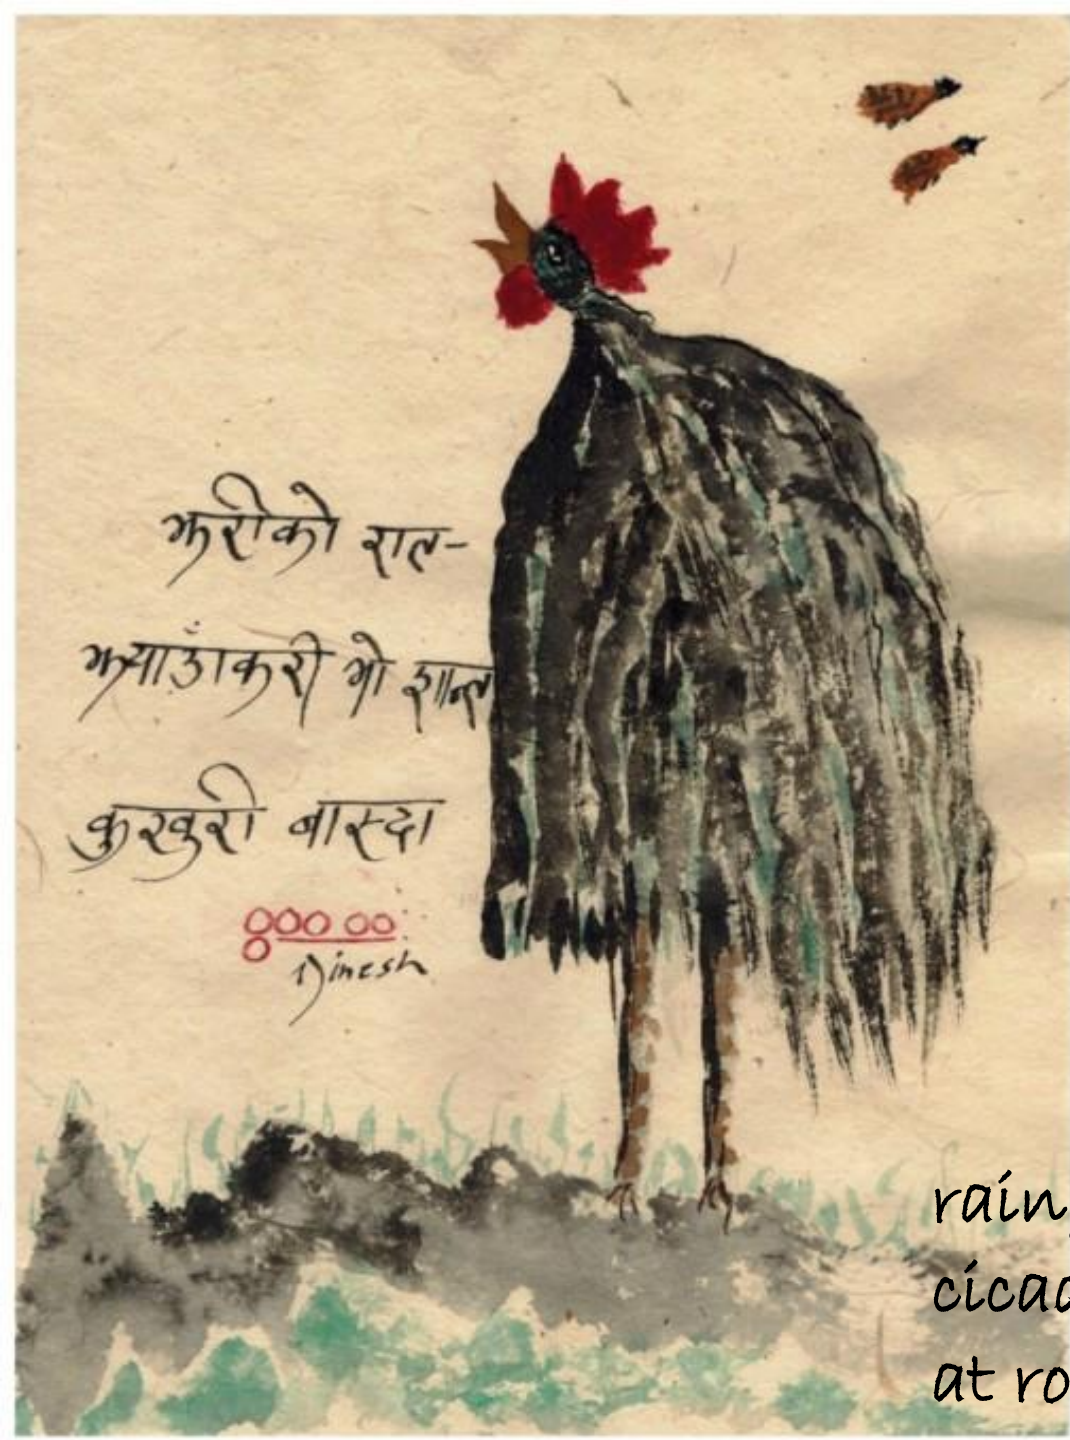 झरीको रात-
झ्याउँकिरी भो शान्त
कुखुरी बास्दा
Dinesh
rain
cicad
at ro